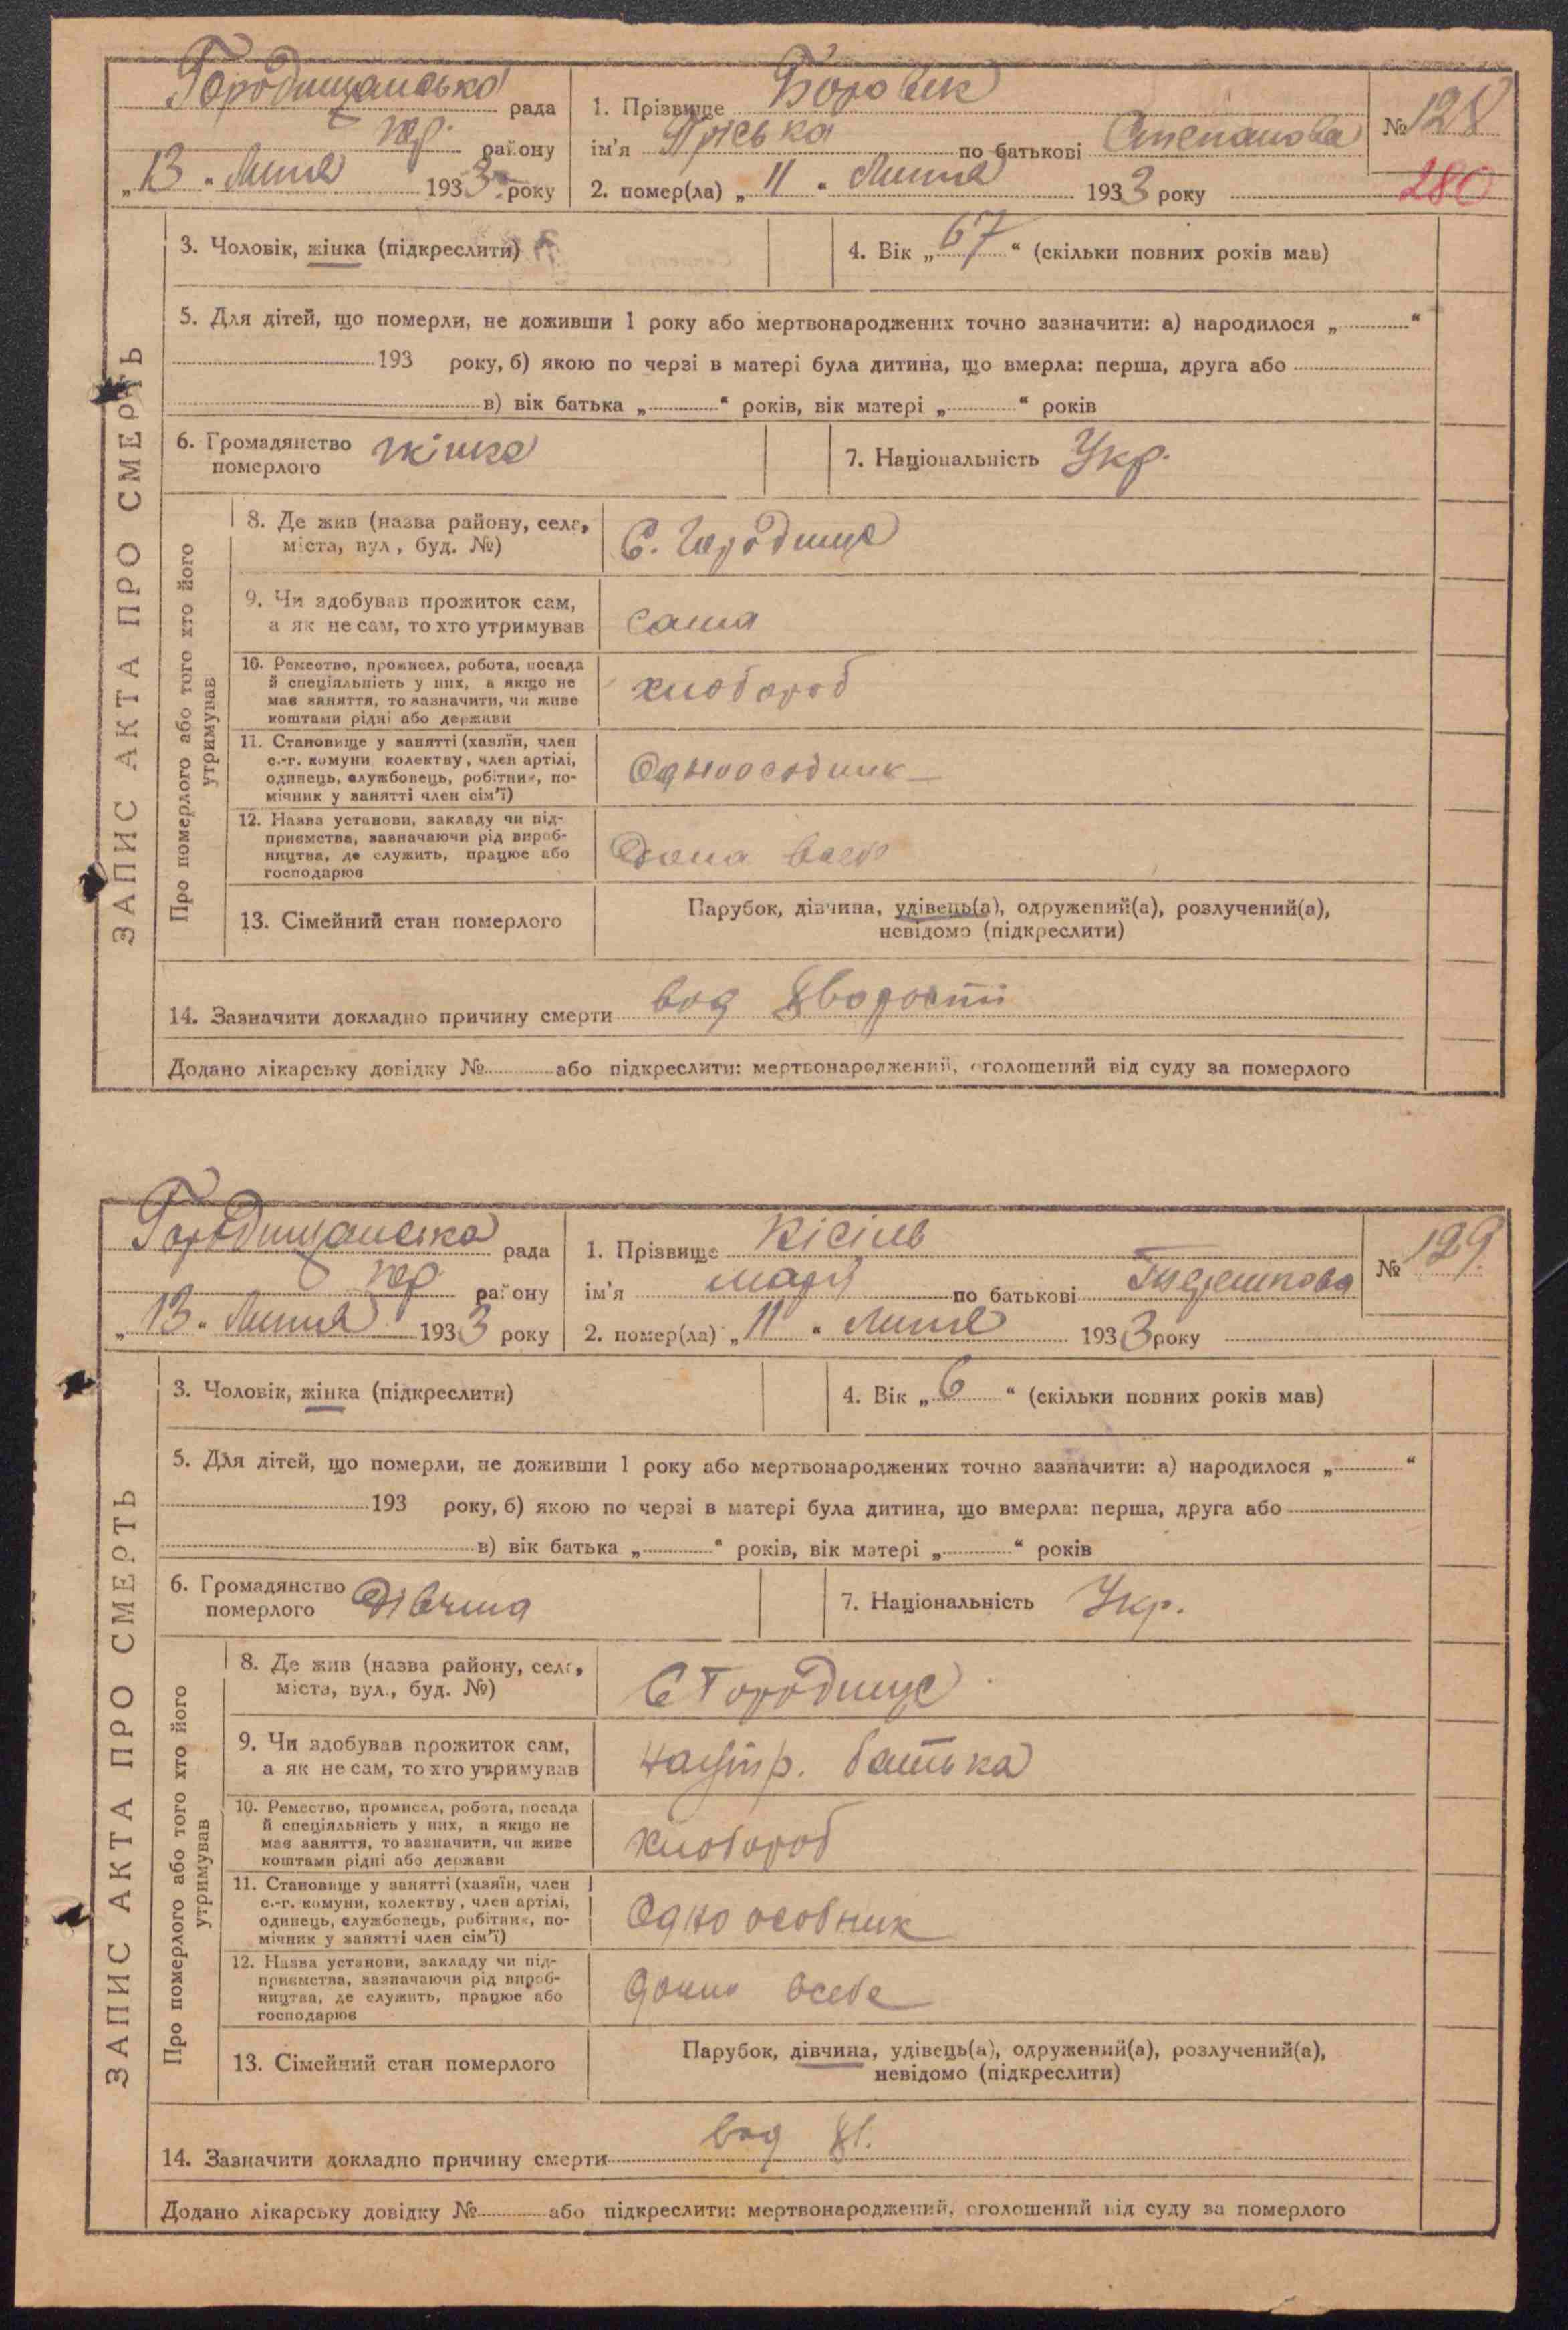 Городищанська рада
1. Прізвище Боровик
№ 128
пер. району
ім'я Пріська по батькові Степанова
„13" Липня 1933 року
2. помер(ла) „11" Липня 1933 року
280
3. Чоловік, жінка (підкреслити)
4. Вік „67" (скільки повних років мав)
5. Для дітей, що померли, не доживши 1 року або мертвонароджених точно зазначити: а) народилося „ "
193 року, б) якою по черзі в матері була дитина, що вмерла: перша, друга або
в) вік батька „ " років, вік матері „ " років
6. Громадянство померлого жінка
7. Національність Укр.
ЗАПИС АКТА ПРО СМЕРТЬ
Про померлого або того хто його утримував
8. Де жив (назва району, села, міста, вул, буд. №)
С. Городище
9. Чи здобував прожиток сам, а як не сам, то хто утримував
сама
10. Ремество, промисел, робота, посада й спеціяльність у них, а якщо не має заняття, то зазначити, чи живе коштами рідні або держави
хлібороб
11. Становище у занятті (хазяїн, член с.-г. комуни, колектву, член артілі, одинець, службовець, робітник, помічник у занятті член сім'ї)
Одноособник
12. Назва установи, закладу чи підприємства, зазначаючи рід виробництва, де служить, працює або господарює
Дома
13. Сімейний стан померлого
Парубок, дівчина, удівець(а), одружений(а), розлучений(а),
невідомо (підкреслити)
14. Зазначити докладно причину смерти вод
Додано лікарську довідку № або підкреслити: мертвонароджений, оголошений від суду за померлого
Городищанська рада
1. Прізвище Кісіль
№ 129.
пер. району
ім'я Марія по батькові
„13" Липня 1933 року
2. помер(ла) „11" Липня 1933 року
3. Чоловік, жінка (підкреслити)
4. Вік „6" (скільки повних років мав)
5. Для дітей, що померли, не доживши 1 року або мертвонароджених точно зазначити: а) народилося „ "
193 року, б) якою по черзі в матері була дитина, що вмерла: перша, друга або
в) вік батька „ " років, вік матері „ " років
6. Громадянство померлого Дівчина
7. Національність Укр.
ЗАПИС АКТА ПРО СМЕРТЬ
Про померлого або того хто його утримував
8. Де жив (назва району, села, міста, вул., буд. №)
С Городище
9. Чи здобував прожиток сам, а як не сам, то хто утримував
На утр. батька
10. Ремество, промисел, робота, посада й спеціяльність у них, а якщо не має заняття, то зазначити, чи живе коштами рідні або держави
Хлібороб
11. Становище у занятті (хазяїн, член с.-г. комуни, колектву, член артілі, одинець, службовець, робітник, помічник у занятті член сім'ї)
Одноособник
12. Назва установи, закладу чи підприємства, зазначаючи рід виробництва, де служить, працює або господарює
Дома всебе
13. Сімейний стан померлого
Парубок, дівчина, удівець(а), одружений(а), розлучений(а),
невідомо (підкреслити)
14. Зазначити докладно причину смерти вод
Додано лікарську довідку № або підкреслити: мертвонароджений, оголошений від суду за померлого